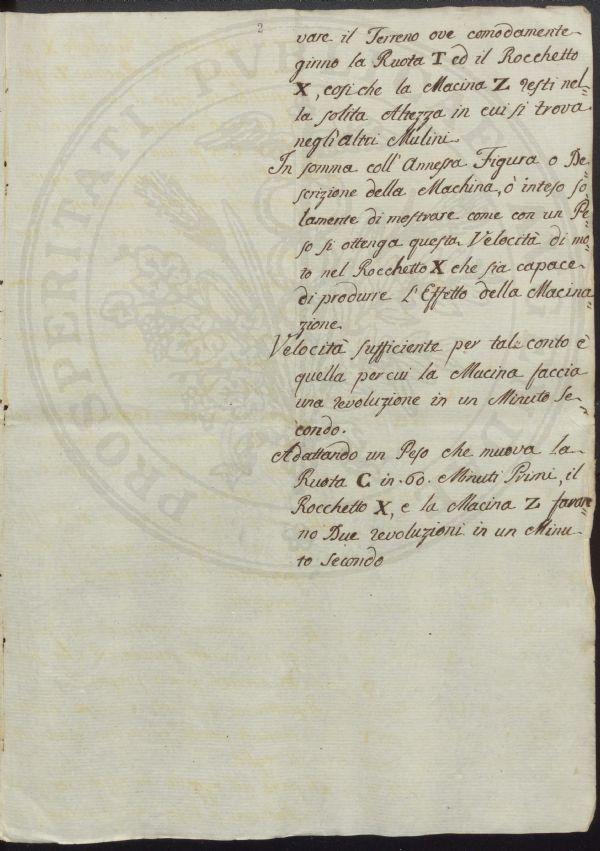 2
vare il Terreno ove comodamente
ginno la Ruota T ed il Rocchetto
X, cosi che la Macina Z resti nel=
la solita Altezza in cui si trova
negli altri Mulini.
In somma coll' Annessa Figura o De=
scrizione della Machina, ò inteso so=
lamente di mostrare come con un Pe=
so si ottenga questa Velocità di mo=
to nel Rocchetto X che sia capace
di produrre l'Effetto della Macina=
zione.
Velocità sufficiente per tale conto è
quella per cui la Macina faccia
una revoluzione in un Minuto Se=
condo.
Adattando un Peso che muova la
Ruota C in .60. Minuti Primi, il
Rocchetto X, e la Macina Z faran=
no Due revoluzioni in un Minu=
to Secondo
PROSPERITATI PUBLICAE